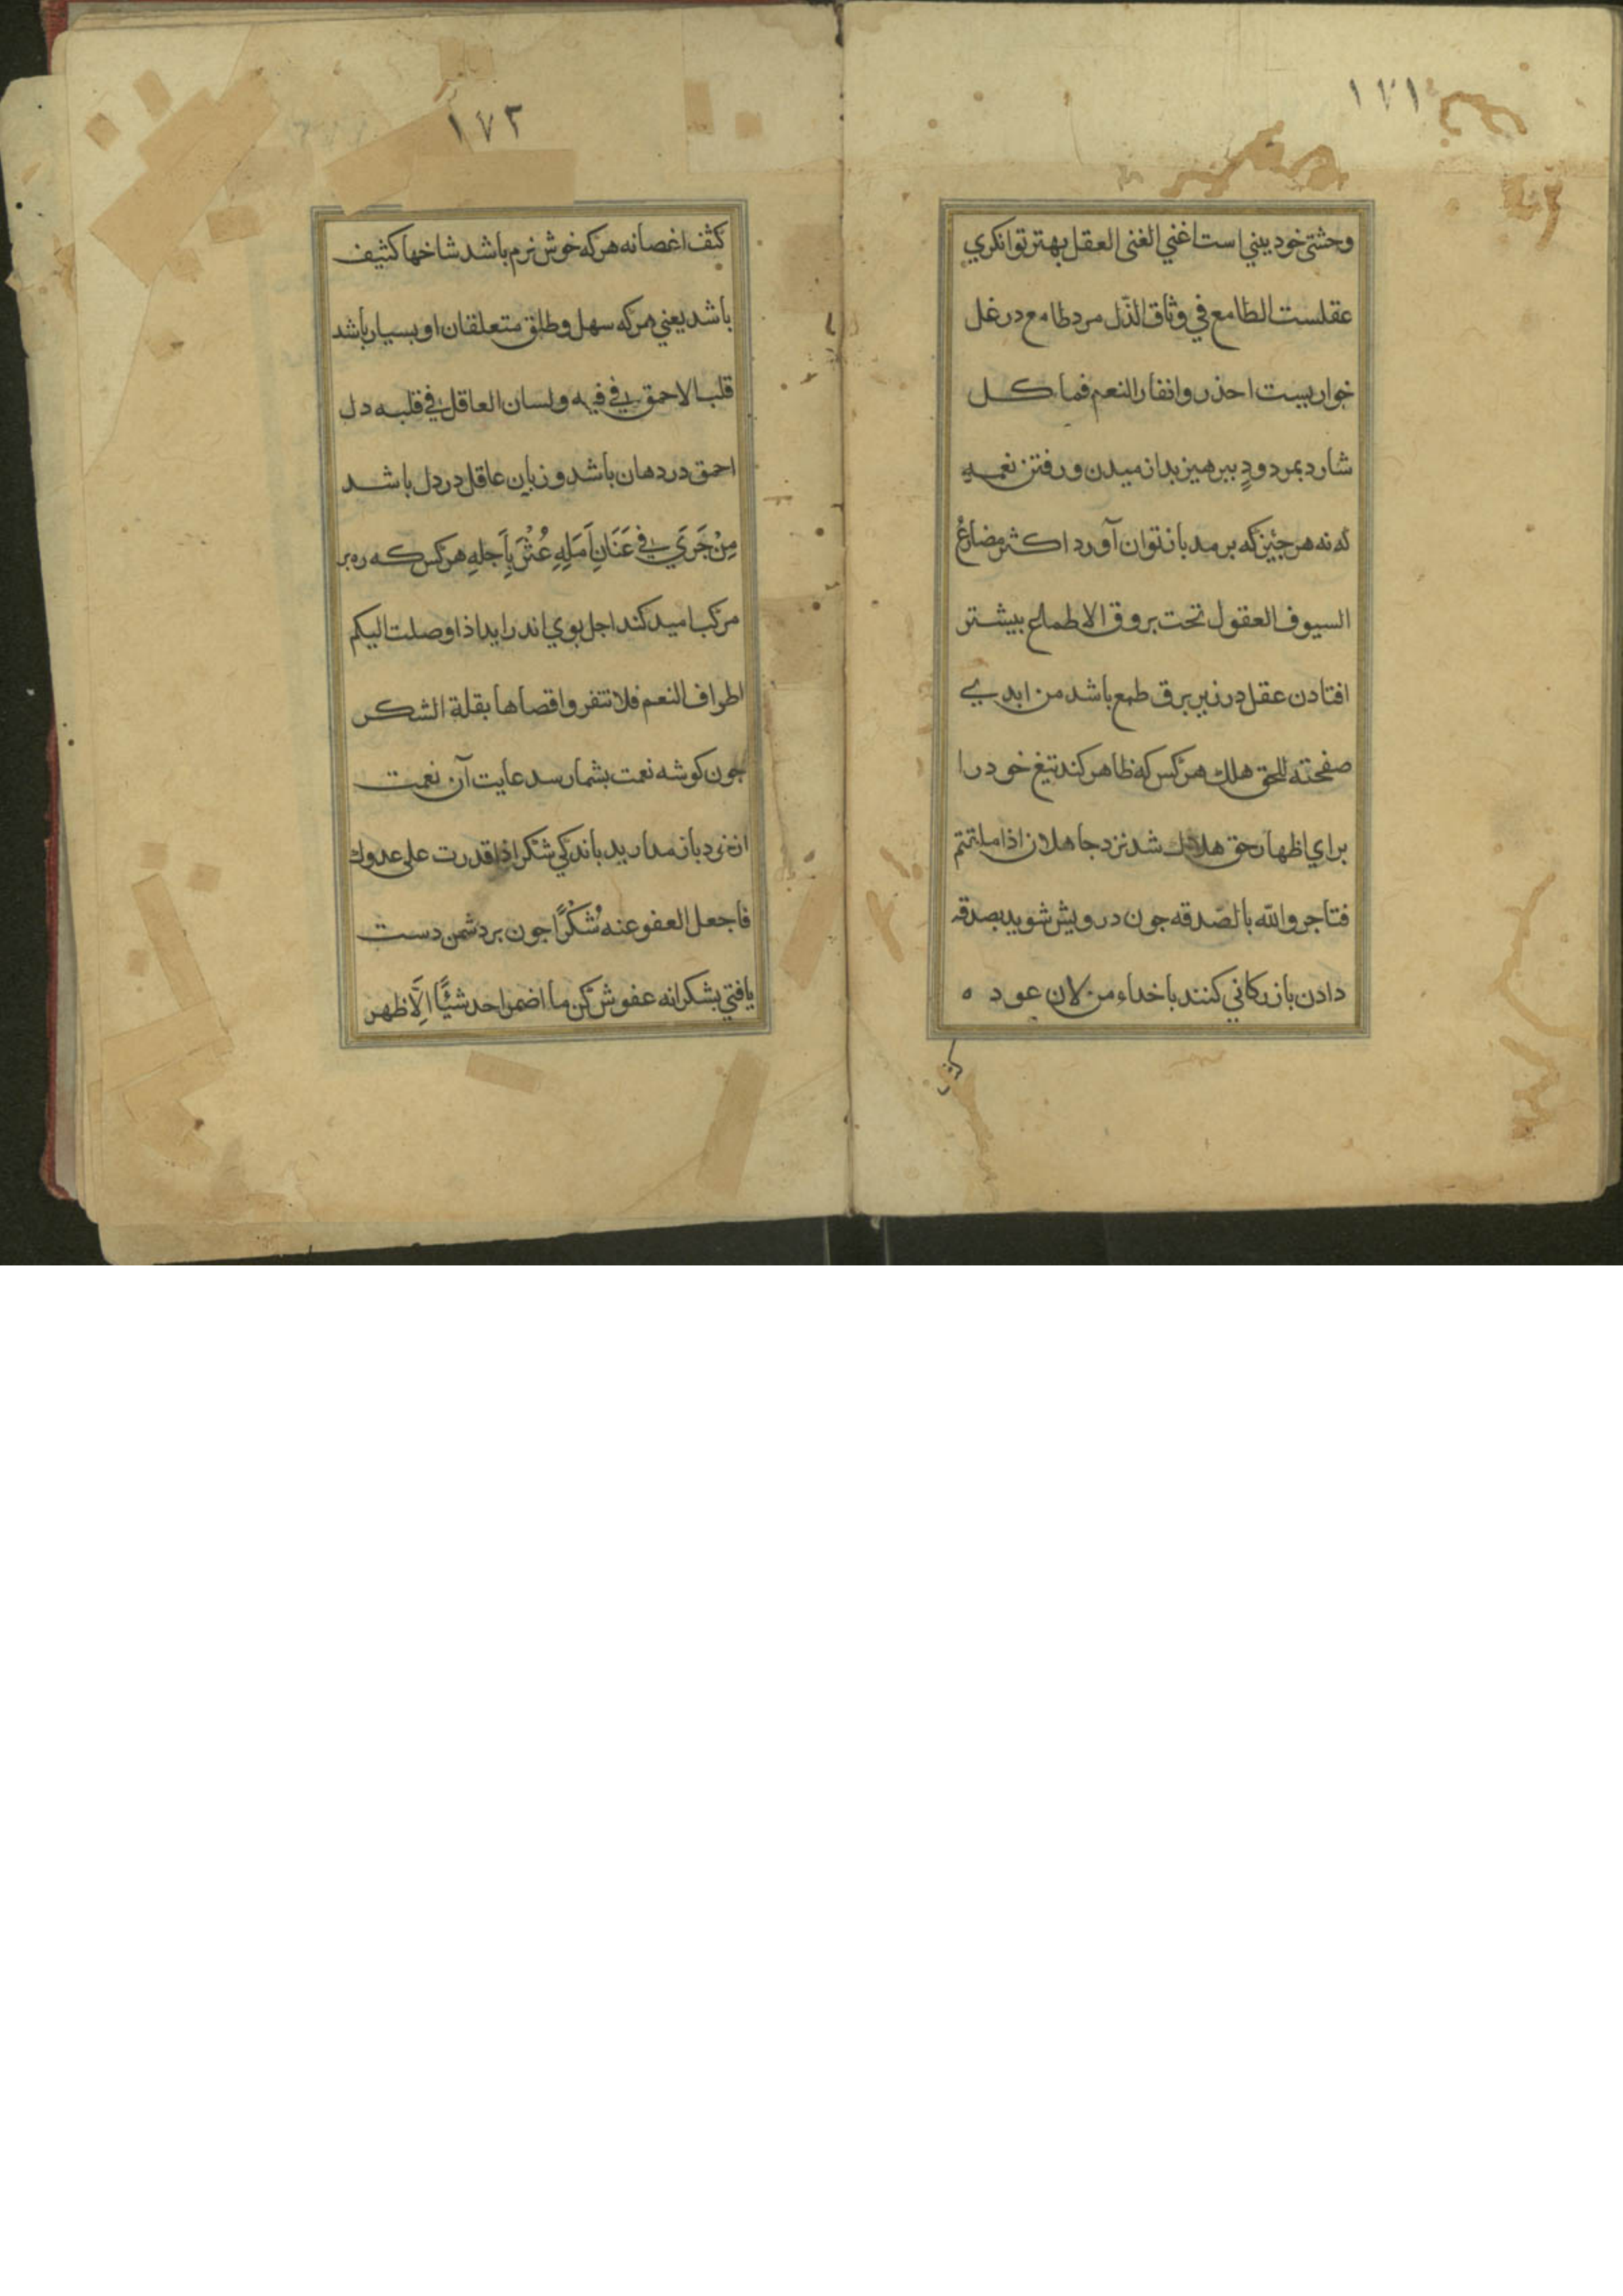 ١٧١
وحشتی خود بینی است اغني الغنی العقل بهتر توانکري
عقلست الطامع في وثاق الذّل مرد طامع در غل
خواریست احذروا نفار النعم فما کل
شارد بمردود ببرهیز بد از میدن و رفتن نعمه
که نه هر جیز که برمد باز توان آورد اکثر مضارع
السیوف العقول تحت بروق الاطماع بیشتر
افتادن عقل در زیر برق طمع باشد من ابدی
صفحته للحق هلك هرکس که ظاهر کند تیغ خود را
براي اظهار حق هلاك شد نزد جاهلان اذا ملتمتم
فتاجروا الله بالصّدقه جون درویش شوید بصدقه
دادن بازرکاني کنند با خداء من لان عوده
کثف
١٧٢
کثف اغصانه هرکه خوش نرم باشد شاخها کثیف
باشد یعني هرکه سهل و طلق متعلقان او بسیار باشد
قلب الاحمق في فيه ولسان العاقل في قلبه دل
احمق در دهان باشد و زبان عاقل در دل باشد
مِنْ جَرَي في عَنَانِ اَمَلِهِ عُثْرَ بِاَجَلِهِ هرکس که ره بر
مرکب امید کند اجل بوي اندر اید اذا وصلت الیکم
اطراف النعم فلا تنفروا اقصاها بقلة الشکر
جون کوشه نعمت بشما رسد عایت آن نعمت
از خود باز مدارید باندکي شکر اذا قدرت علی عدوك
فاجعل العفو عنه شُکْرًا جون بر دشمن دست
یافتي بشکرانه عفوش کن ما اضمر احد شیئًا اِلّا ظهر